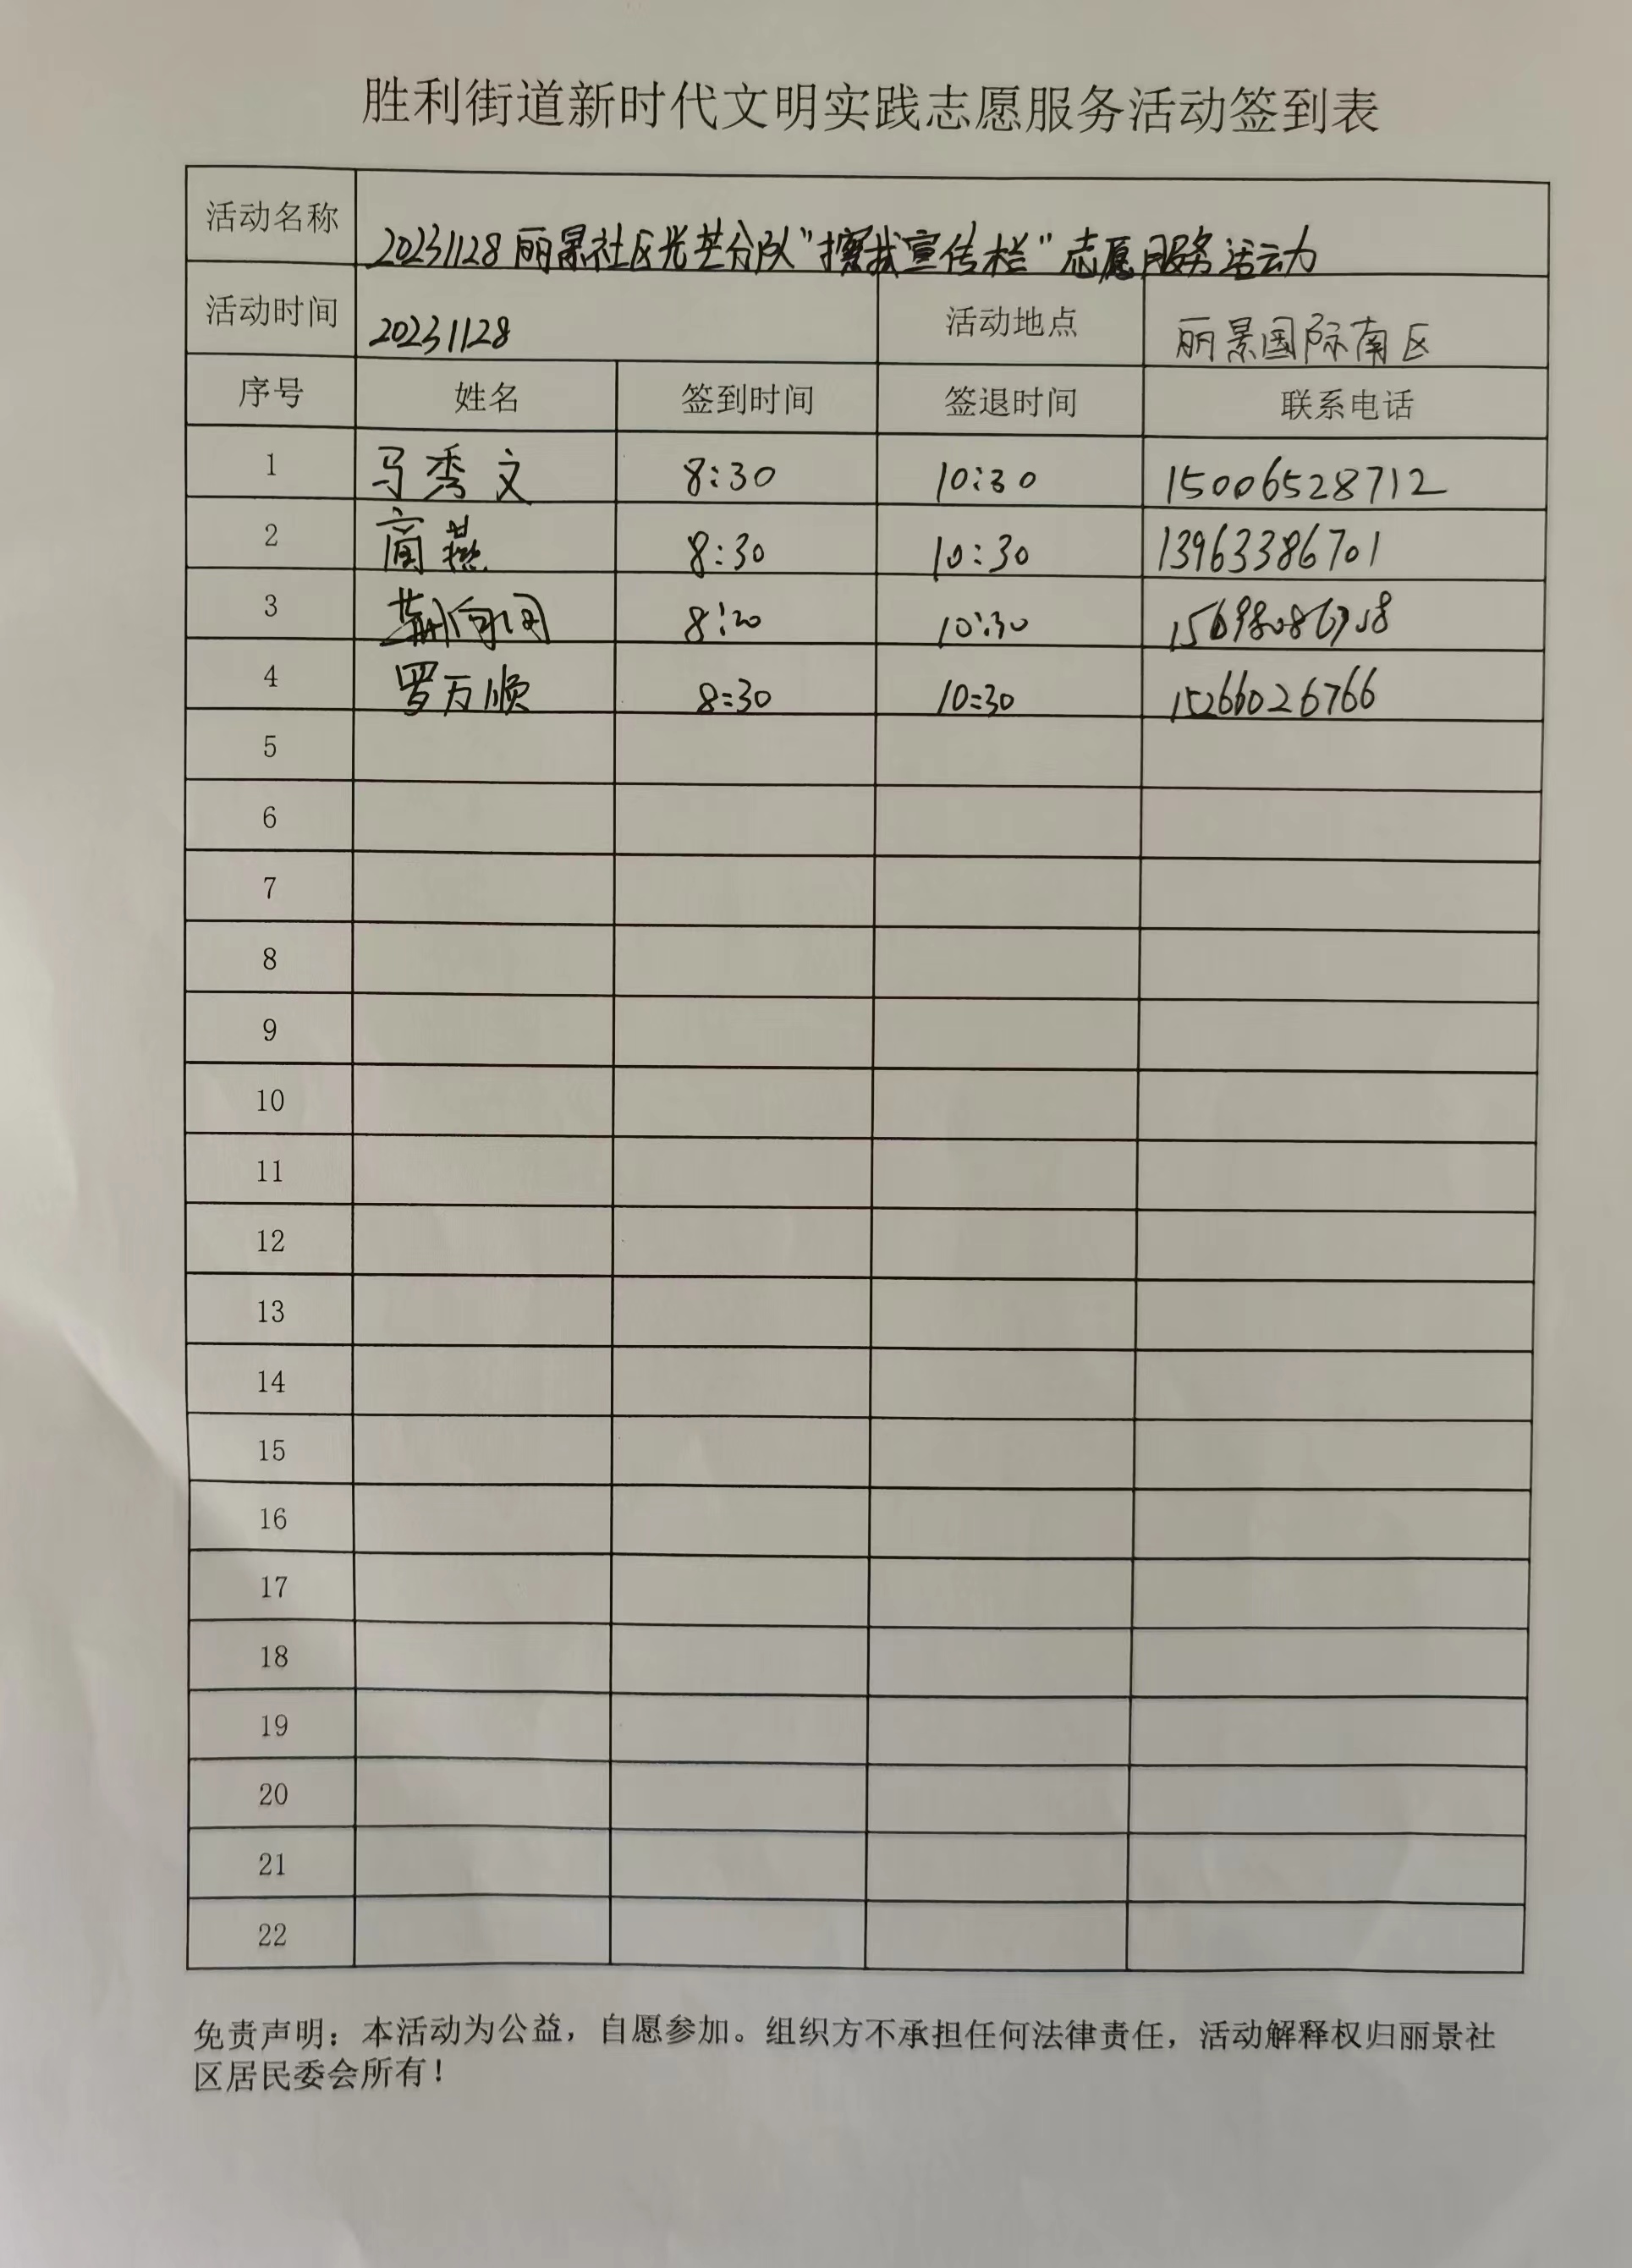 胜利街道新时代文明实践志愿服务活动签到表
活动名称 20231128丽景社区光芒分队"擦拭宣传栏"志愿服务活动
活动时间 20231128 活动地点 丽景国际南区
序号 姓名 签到时间 签退时间 联系电话
1 马秀文 8:30 10:30 15006528712
2 商燕 8:30 10:30 13963386701
3 8:30 10:30
4 罗万顺 8:30 10:30 15266026766
5
6
7
8
9
10
11
12
13
14
15
16
17
18
19
20
21
22
免责声明：本活动为公益，自愿参加。组织方不承担任何法律责任，活动解释权归丽景社
区居民委会所有！